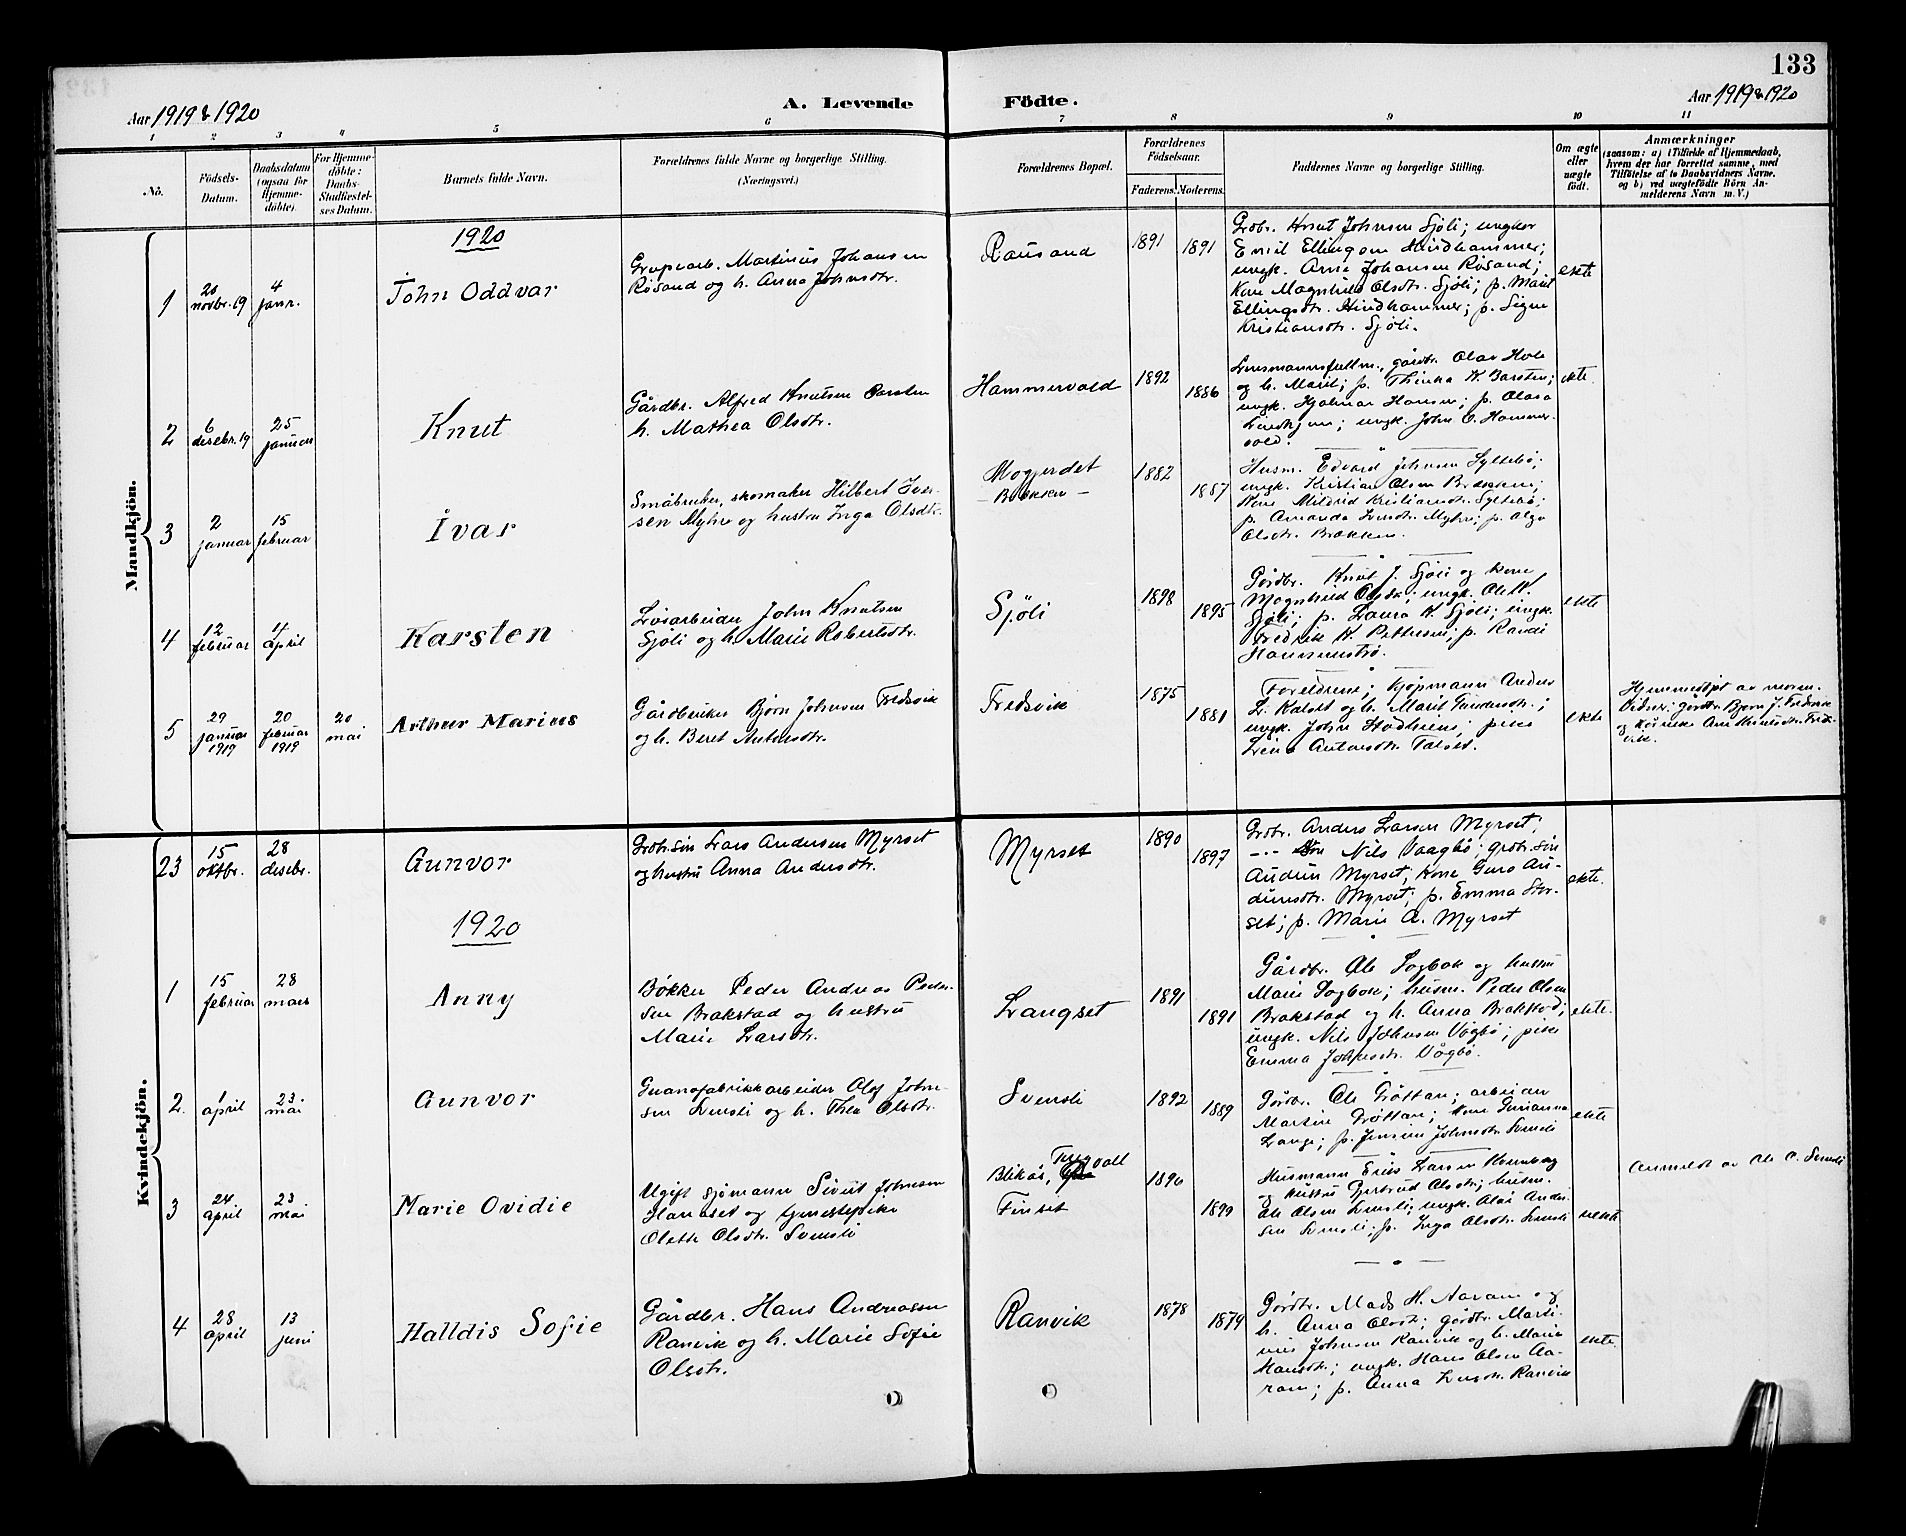 133
Aar 1919 & 1920
A. Levende Födte.
Aar 1919 & 1920
1 2 3 4 5 6 7 8 9 10 11
No.
Födsels-Datum.
Daabsdatum (ogsaa for Hjemmedöbte).
For Hjemmedöbte: Daabs-Stadfæstelses Datum.
Barnets fulde Navn.
Forældrenes fulde Navne og borgerlige Stilling.
(Næringsvei.)
Forældrenes Bopæl.
Forældrenes Födselsaar.
Faderens. Moderens.
Faddernes Navne og borgerlige Stilling.
Om ægte eller uægte födt.
Anmærkninger
(saasom: a) i Tilfælde af Hjemmedaab,
hvem der har forrettet samme, med
Tilföielse af to Daabsvidners Navne,
og b) ved uægtefödte Börn Anmelderens Navn m. V.)
Mandkjön.
1920
1
20 novbr. 19
4 janr.
John Oddvar
Grupearb. Martinius Johansen
Røsand og h. Anna Johnsdtr.
Rausand
1891
1891
Grdbr. Knut Johnsen Sjöli; ungkar
Emil Ellingsen Hindhammer;
ungk. Arne Johansen Røsand;
Kone Magnhild Olsdtr. Sjöli; p. Marit
Ellingsdtr. Hindhammer; p. Signe
Kristiansdtr. Sjöli.
ekte
2
6 desebr. 19
25 januar
Knut
Gårdbr. Alfred Knutsen Barsten
h. Mathea Olsdtr.
Hammervold
1892
1886
Lensmannsfullm., gårdbr. Olav Hole
og h. Marit; p. Thinka K. Barsten;
ungk. Hjalmar Hansen; p. Olasa
ungk. John O. Hammer-
vold.
ekte
3
2 januar
15 februar
Ivar
Småbruker, skomaker Hilbert Iver-
sen Myhre og hustru Inga Olsdtr.
Mogjerdet
- Bakken -
1882
1887
Husm. Edvard Johnsen Syltebö;
ungk. Kristian Olsen Brækken;
Kone Mildrid Kristiansdtr. Syltebö;
p. Amanda Iversdtr. Myhre; p. Olga
Olsdtr. Brækken.
4
12 februar
4 april
Karsten
Lösarbeider John Knutsen
Sjöli og h. Marie Robertsdtr.
Sjöli
1898
1895
Gårdbr. Knut J. Sjöli og kone
Magnhild Olsdtr.; ungk. Ole K.
Sjöli; p. Laura K. Sjöli; ungk.
Fredrik K. Pettersen; p. Randi
ekte
5
29 januar 1919
20 februar 1919
20 mai
Arthur Marius
Gårdbruker Bjørn Johnsen Fredsvik
og h. Beret Antonsdtr.
Fredsvik
1875
1881
Foreldrene; kjøpmann Anders
L. Kalset og h. Marit Gundersdtr.;
ungk. John Stadheim; pike
Lena Antonsdtr. Talset.
ekte
Hjemmedöpt av moren.
Vidner: gårdbr. Bjørn J. Fredsvik
Kvindekjön.
23
15 oktbr.
28 desebr.
Gunvor
Grdbr.sön Lars Andersen Myrset
og hustru Anna Andersdtr.
Myrset
1890
1897
Grdbr. Anders Larsen Myrset;
-"- Nils Vaagbø; grdbr.sön
Audun Myrset; kone Guro Au-
dunsdtr. Myrset; p. Emma Stor-
set; p. Marie A. Myrset
ekte.
1920
1
15 februar
28 mars
Anny
Bøkker Peder Andreas Peder-
sen Brakstad og hustru
Marie Larsdtr.
Langset
1891
1891
Gårdbr. Ole Sogbok og hustru
Marie Sogbok; husm. Peder Olsen
Brakstad og h. Anna Brakstad;
ungk. Nils Johnsen Vågbø; pike
Emma Johnsdtr. Vågbö.
ekte.
2.
1 april
23 mai
Gunvor
Guanofabrikkarbeider Olaf John-
sen Svensli og h. Thea Olsdtr.
Svensli
1892
1889
Gårdbr. Ole Grøttan; arbeider
Martin Grøttan; kone
Lange; p. Jensine Johnsdtr. Svensli
ekte
3
24 april
23 mai
Marie Ovidie
Ugift sjømann Sivert Johnsen
Hanaset og tjenestepike
Olette Olsdtr. Svensli
Blikås, Tuggvoll
Finset
1890
1899
Husmann Erik Larsen
og hustru Gjertrud Olsdtr; husm.
Ole Olsen Svensli; ungk. Olaf Ander-
sen Svensli; p. Inga Olsdtr. Svensli
uekte
Anmeldt av Ole O. Svensli
4
28 april
13 juni
Halldis Sofie
Gårdbr. Hans Andreassen
Ranvik og h. Marie Sofie
Olsdtr.
Ranvik
1878
1879
Gårdbr. Mads H. Aaram og
h. Anna Olsdtr; gårdbr. Marti-
nus Johnsen Ranvik og h. Marie
Hansdtr.; ungk. Hans Olsen Aa-
ram; p. Anna Ranvik
ekte.